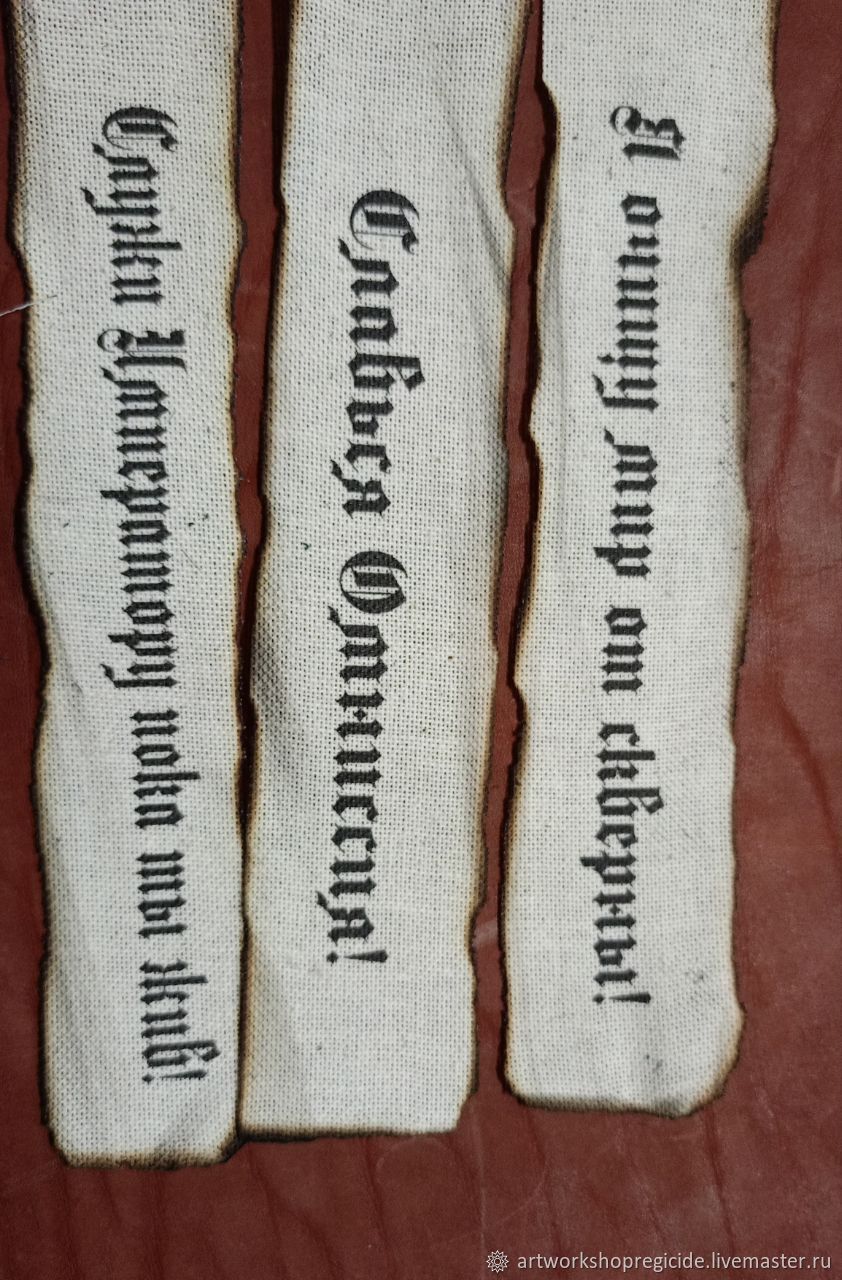 Я очищу мир от скверны!
Славься Омниссия!
Служи Императору пока ты жив!
artworkshopregicide.livemaster.ru